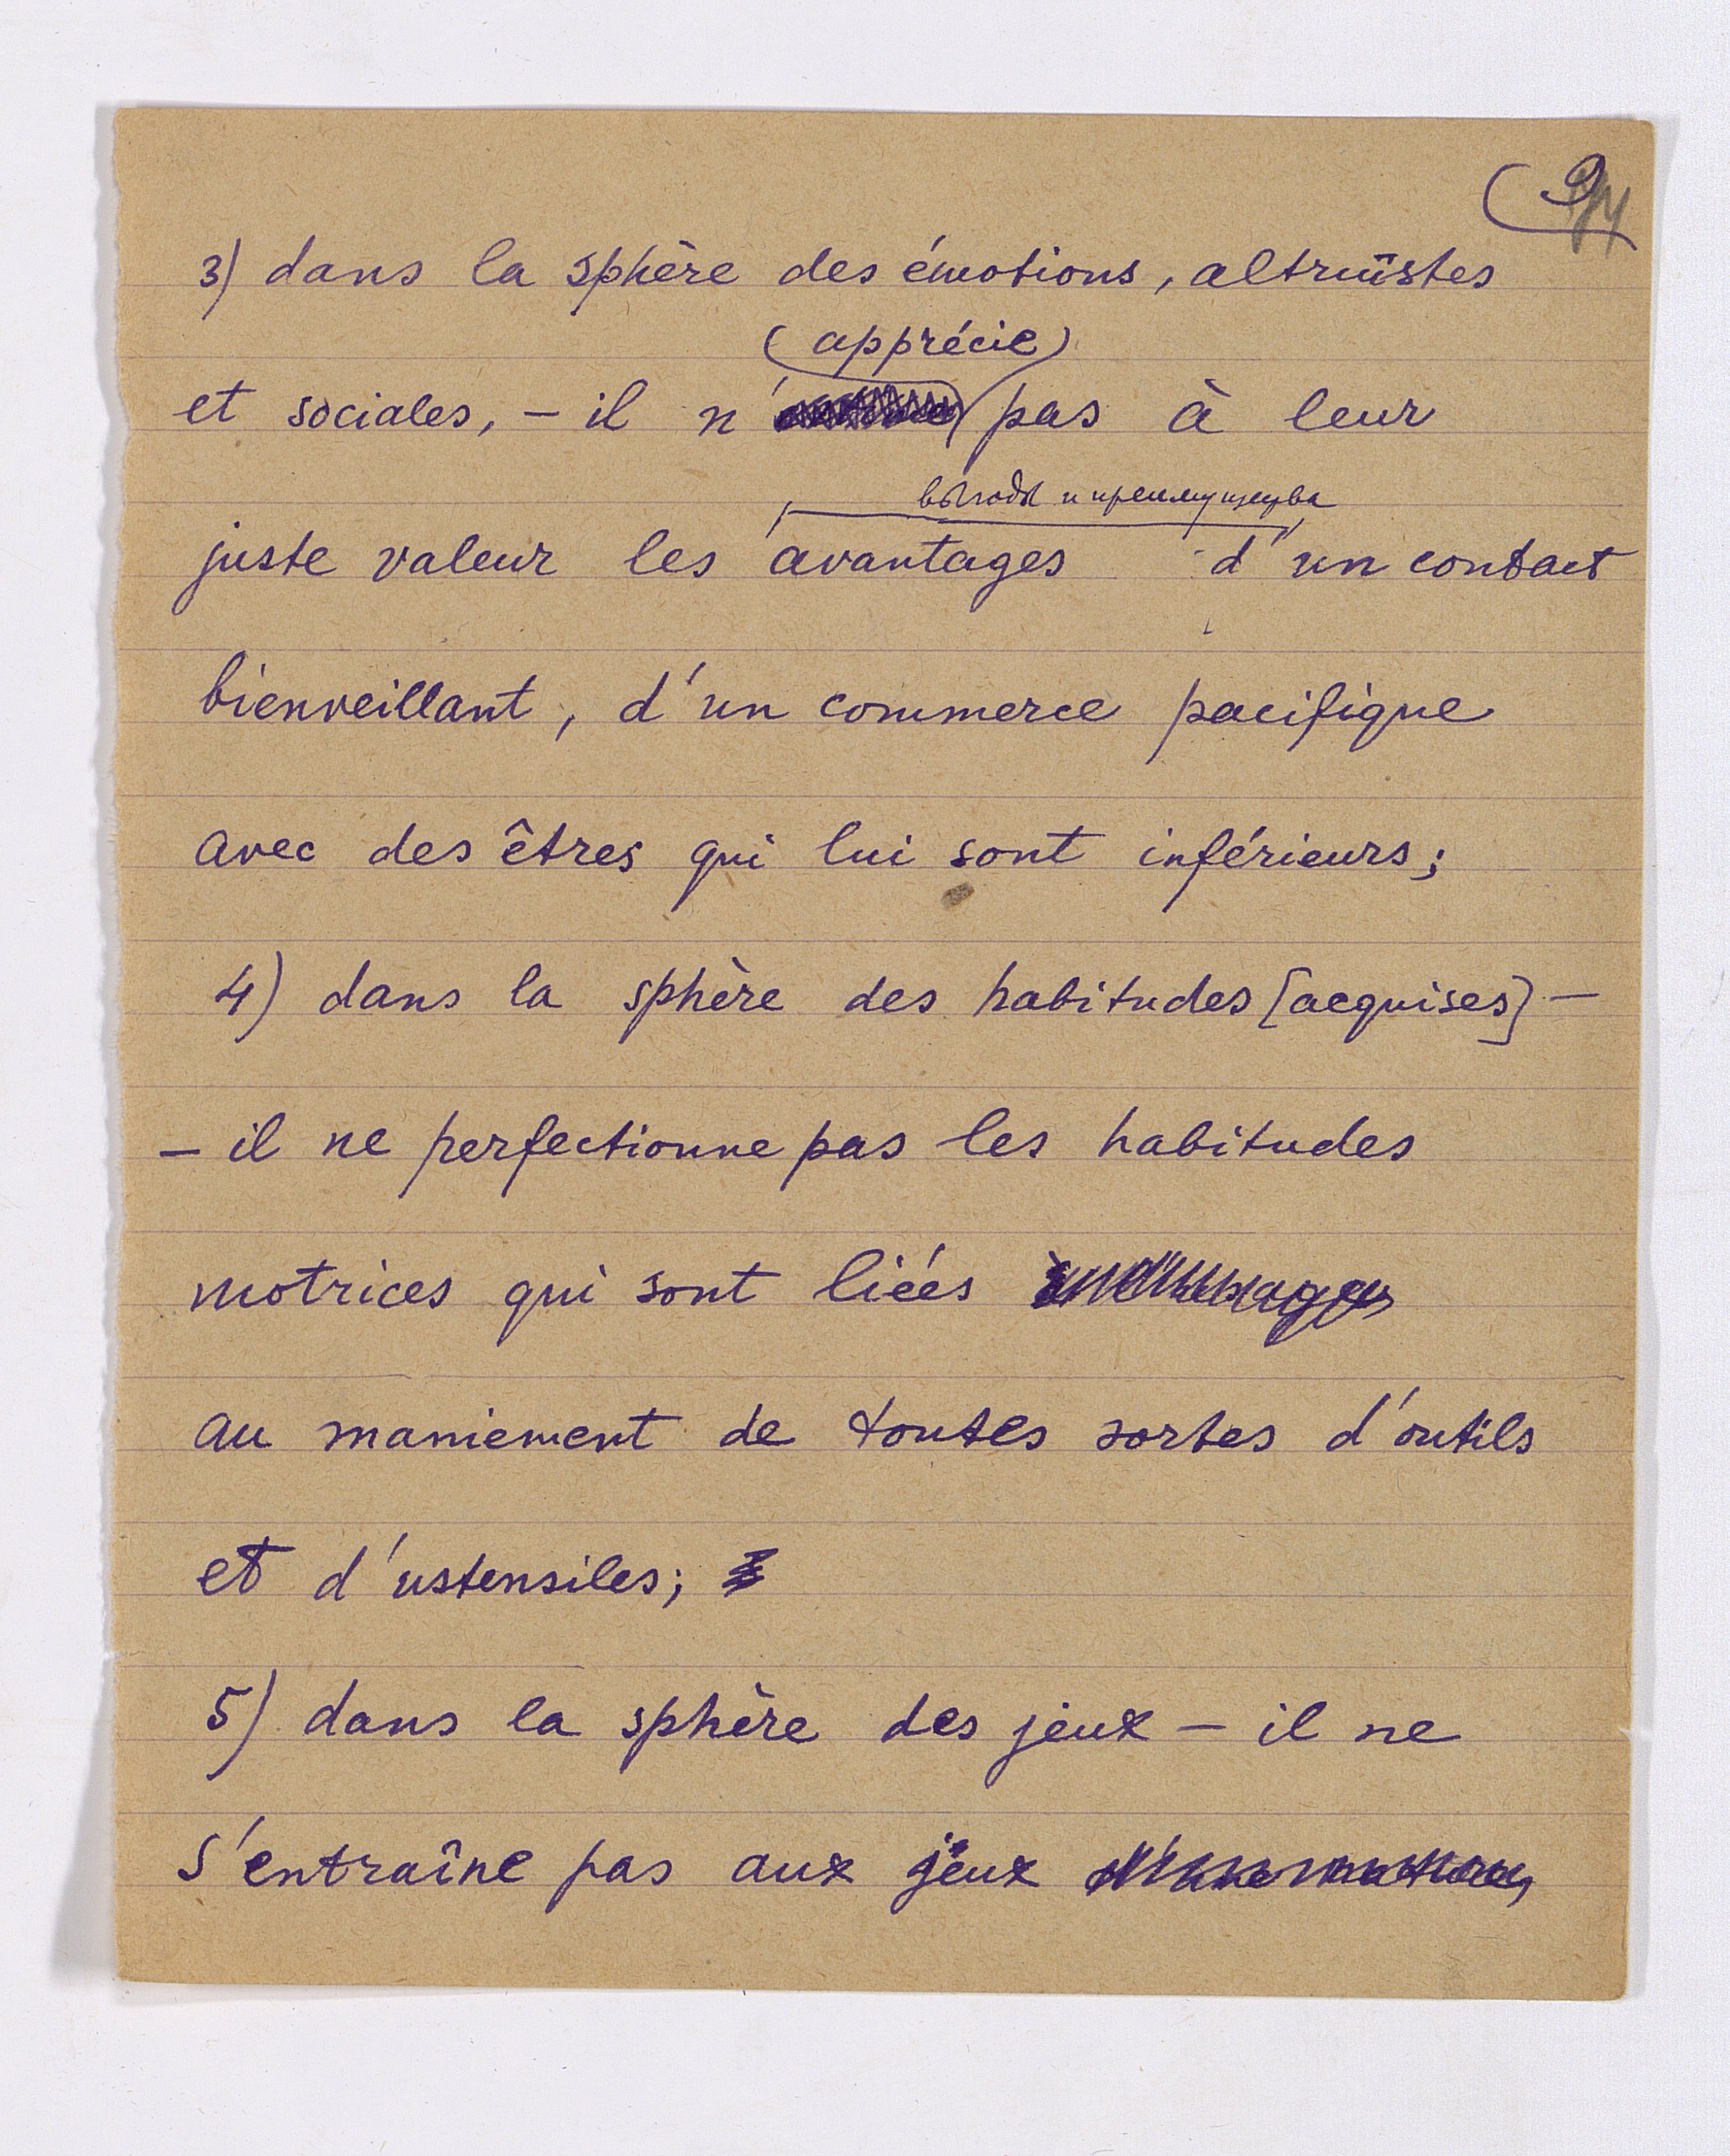 (9
3) dans la sphère des émotions, altruïstes
(apprécie)
et sociales, – il n' pas à leur
выгоды и преимущества
juste valeur les avantages d'un contact
bienveillant, d'un commerce pacifique
avec des êtres qui lui sont inférieurs;
4) dans la sphère des habitudes [acquises] –
– il ne perfectionne pas les habitudes
motrices qui sont liées
au maniement de toutes sortes d'outils
et d'ustensiles;
5) dans la sphère des jeux – il ne
s'entraîne pas aux jeux